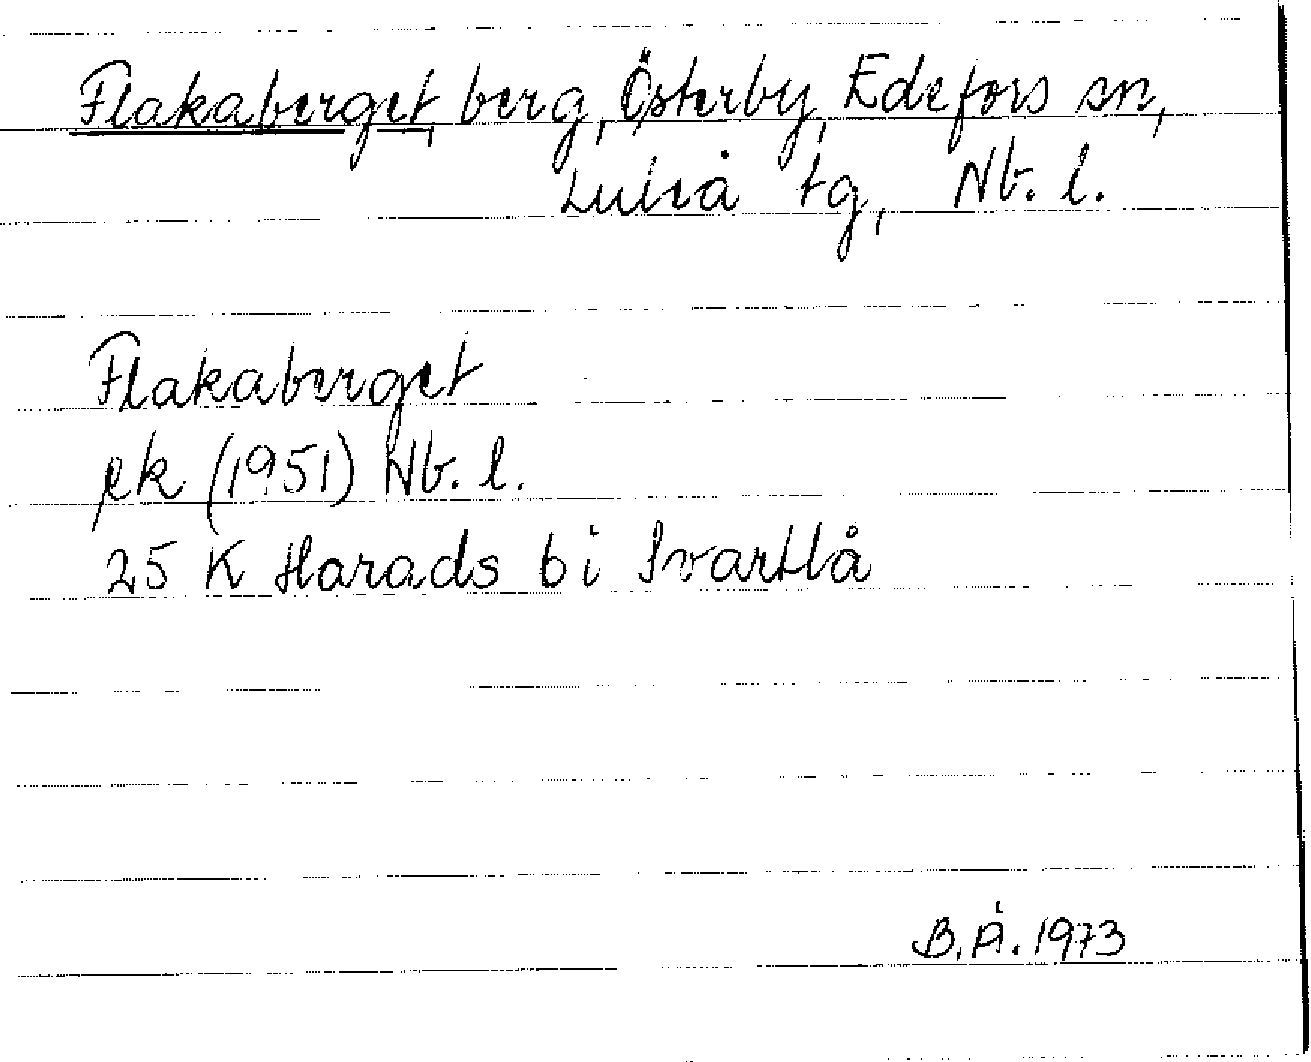 Flakaberget, berg, Österby, Edefors sn,
Luleå tg, Nb. l.
Flakaberget
ek (1951) Nb. l.
25 K Harads bi Svartlå
B. Å. 1973